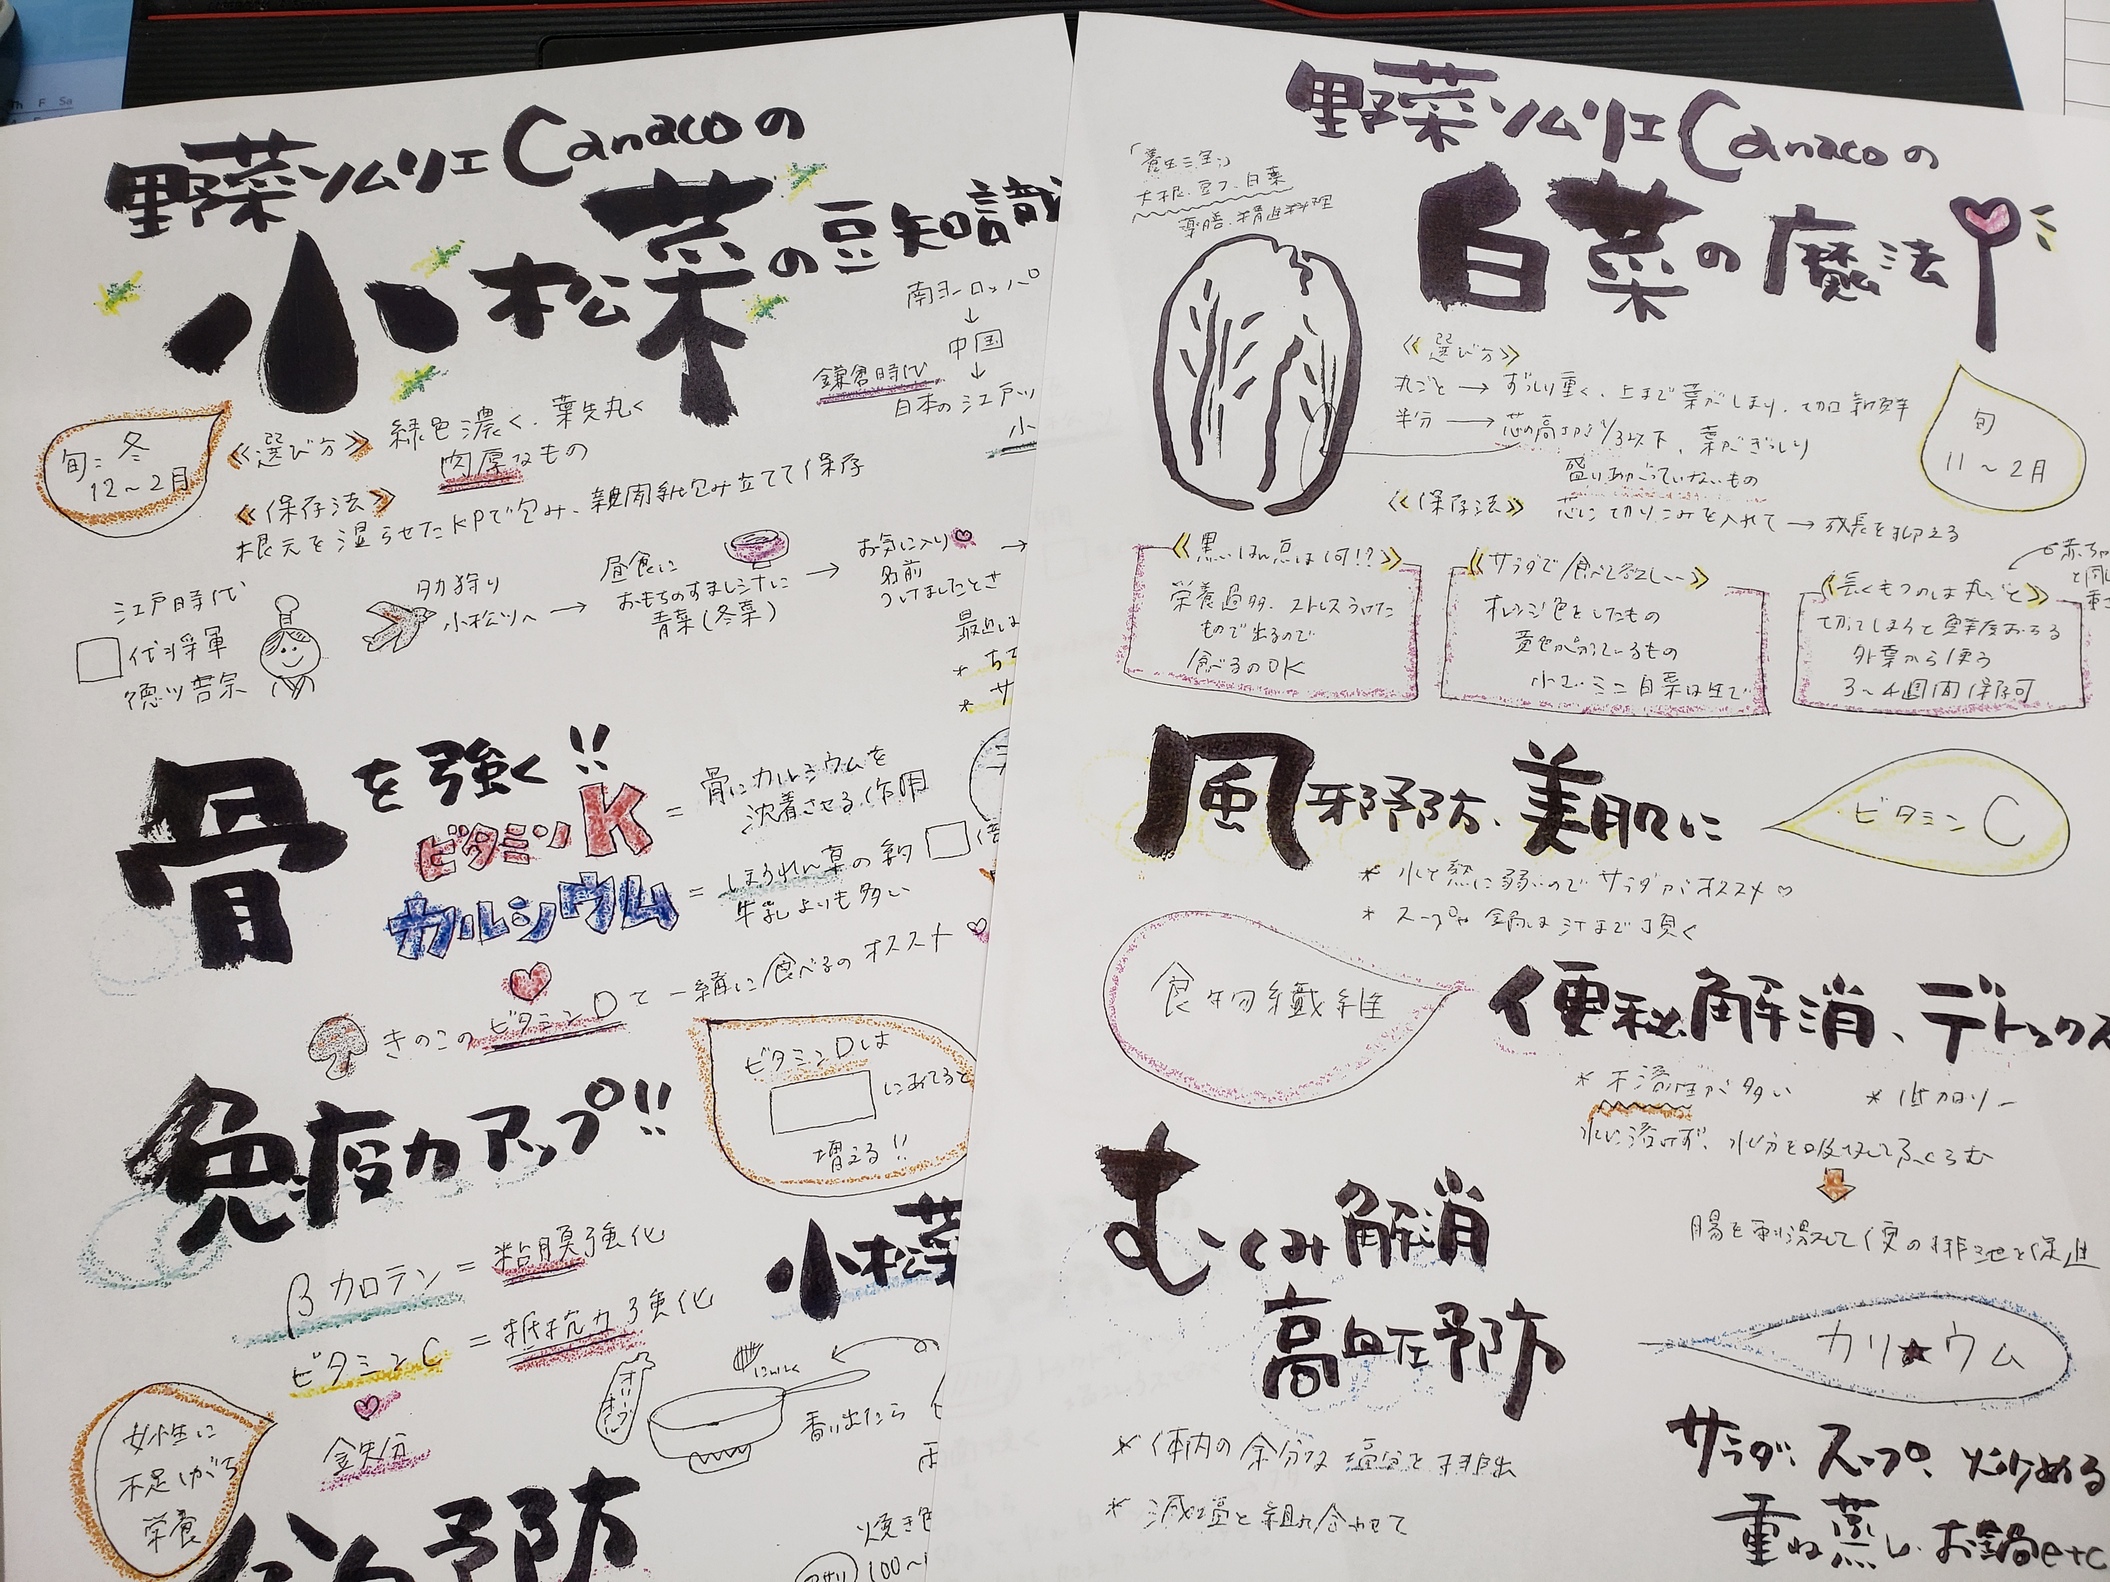 Th F Sa
野菜ソムリエCanacoの
小松菜の豆知識
南ヨーロッパ
↓
中国
↓
鎌倉時代
日本の江戸ッ
小
旬:冬
12〜2月
《選び方》 緑色濃く、葉先丸く
肉厚なもの
《保存法》
根元を湿らせたKPで包み、新聞紙包み立てて保存
江戸時代
□代将軍
徳川吉宗
小松川へ →
昼食に
おもちのすまし汁に
青菜(冬菜)
→ お気に入り♡
名前
つけましたとさ
→
最近は
* サ
骨を強く!!
ビタミンK = 骨にカルシウムを
沈着させる作用
カルシウム = ほうれん草の約□倍
牛乳よりも多い
きのこのビタミンDで一緒に食べるのオススメ♡
ビタミンDは
□にあてると
増える!!
免疫力アップ!!
βカロテン = 粘膜強化
ビタミンC = 抵抗力強化
♡
鉄分
女性に
不足しがち
栄養
予防
小松菜
にんにく
オリーブオイル
香り出たら
焼き色
100〜
野菜ソムリエCanacoの
白菜の魔法
「養生三宝」
大根、豆フ、白菜
薬膳、精進料理
《選び方》
丸ごと → ずっしり重く、上まで葉がしまり、切口新鮮
半分 → 芯の高さが1/3以下、葉がぎっしり
盛りあがっていないもの
《保存法》 芯に切りこみを入れて → 成長を抑える
旬
11〜2月
《黒いはん点は何!?》
栄養過多、ストレスうけた
もので出るので
食べるのOK
《サラダで食べて欲しい》
オレンジ色をしたもの
黄色がかっているもの
小さい ミニ白菜は生で
《長くもつのは丸ごと》
切ってしまうと鮮度おちる
外葉から使う
3〜4週間保存可
赤ちゃ
と同じ
風邪予防、美肌に
ビタミンC
* 水と熱に弱いのでサラダがオススメ♡
* スープや鍋は汁まで頂く
食物繊維
便秘解消、デトックス
* 不溶性が多い
* 低カロリー
水に溶けず、水分を吸収してふくらむ
腸を刺激して便の排泄を促進
むくみ解消
高血圧予防
カリ★ウム
* 体内の余分な塩分を排出
* 減塩と組み合わせて
サラダ、スープ、炒める
重ね蒸し、お鍋etc